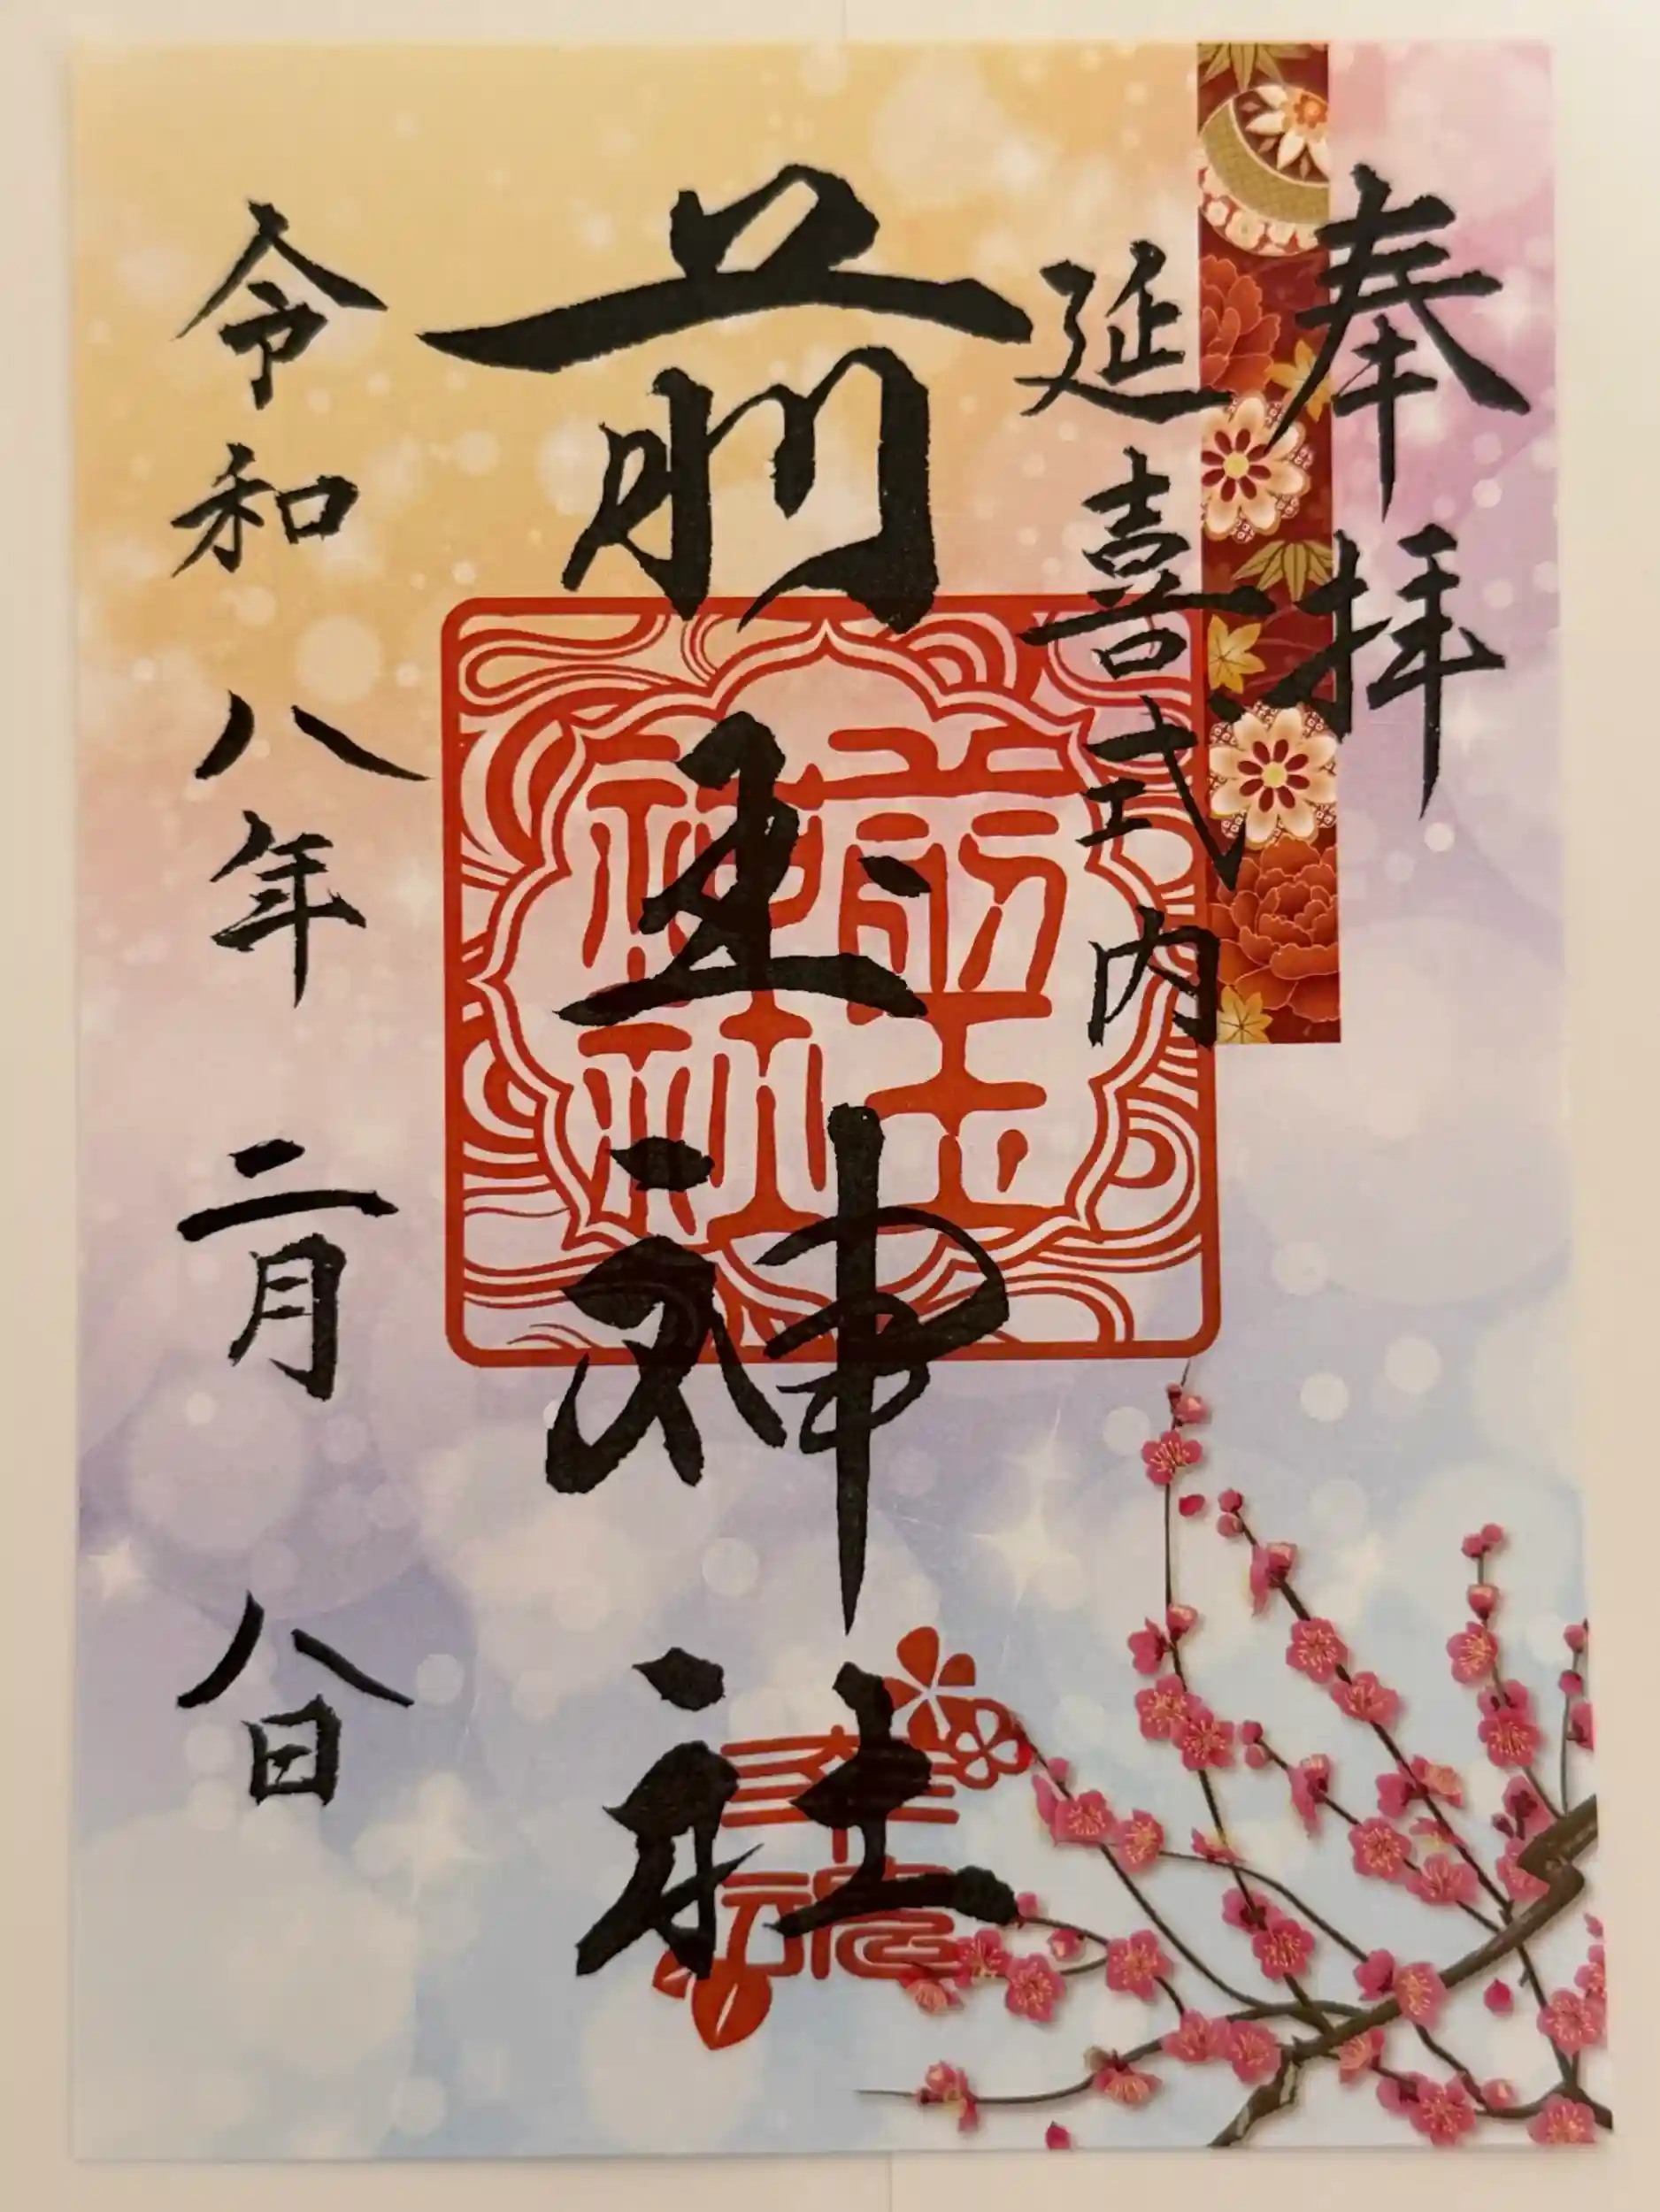 奉拝
延喜式内
前玉神社
前玉
神社
幸魂
令和八年二月八日